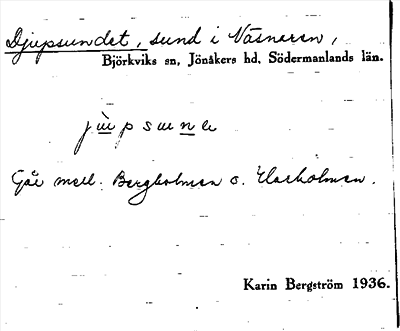 Djupsundet, sund i Väsneren,
Björkviks sn, Jönåkers hd, Södermanlands län.
Går mell. Bergholmen o. Harholmen.
Karin Bergström 1936.